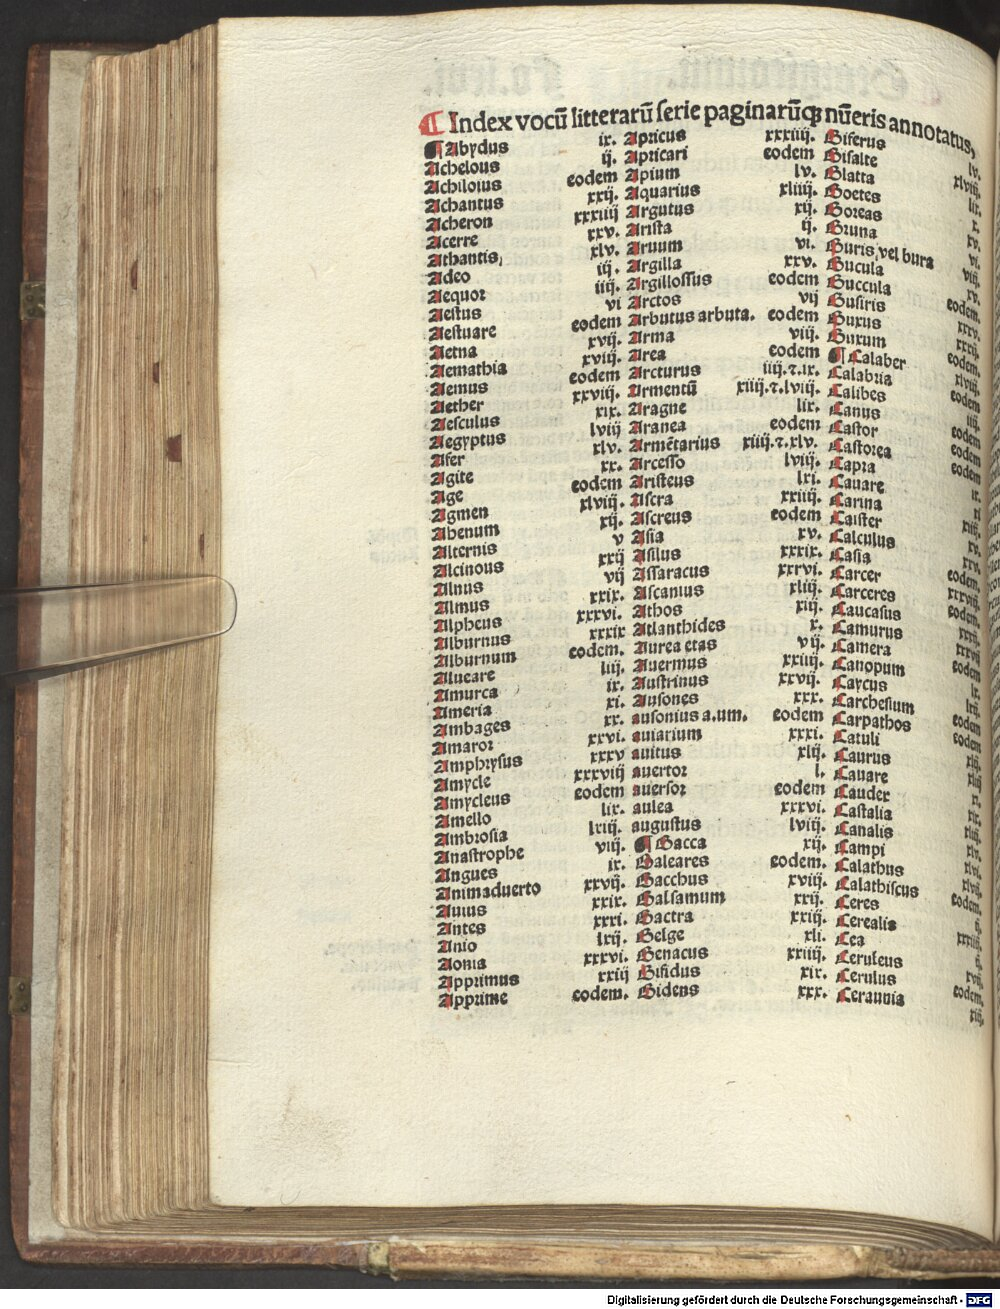 ¶ Index vocū litterarū serie paginarūqꝫ nūeris annotatus,
¶ Abydus ix.
Achelous ij.
Achiloius eodem
Achantus xxij.
Acheron xxxiiij
Acerre xxv.
Athantis, xlv.
Adeo iij.
Aequor iiij.
Aestus vi
Aestuare eodem
Aetna xvij.
Aemathia xviij.
Aemus eodem
Aether xxviij.
Aesculus xix.
Aegyptus lviij
Afer xlv.
Agite xx.
Age eodem
Agmen xlviij.
Ahenum xij.
Alternis v
Alcinous xxij
Alnus vij
Almus xxix.
Alpheus xxxvi.
Alburnus xxxix
Alburnum eodem.
Alueare liij.
Amurca ix.
Ameria xi.
Ambages xx.
Amaror xxvi.
Amphrysus xxxv
Amycle xxxviij
Amycleus eodem
Amello lix.
Ambrosia lxiij.
Anastrophe viij.
Angues ix.
Animaduerto xxvij.
Auius xxix.
Antes xxxi.
Anio lxij.
Aonia xxxvi.
Apprimus xxiij
Apprime eodem.
Apricus xxxiiij.
Apricari eodem
Apium lv.
Aquarius xliij.
Argutus xij.
Arista ij.
Aruum vi.
Argilla xxv.
Argillossus eodem
Arctos vij
Arbutus arbuta. eodem
Arma viij.
Area eodem
Arcturus iiij.⁊.ix.
Armentū xiij.⁊.lviij.
Aragne lix.
Aranea eodem
Armētarius xiiij.⁊.xlv.
Arcesso lviij.
Aristeus lxi.
Ascra xxiiij.
Ascreus eodem
Asia xv.
Asilus xxxix.
Assaracus xxxvi.
Ascanius xliij.
Athos xiij.
Atlanthides x.
Aurea etas vij.
Auernus xxiij.
Austrinus xxvij.
Ausones xxx.
ausonius a.um. eodem
auiarium xxxi.
auitus xlij.
auertor l.
auersor eodem
aulea xxxvi.
augustus lviij.
¶ Bacca xij.
Baleares eodem.
Bacchus xviij.
Balsamum xxij.
Bactra xxiij.
Belge xli.
Benacus xxiiij.
Bifidus xix.
Bidens xxx.
Biferus lv.
Bisalte xlviij.
Blatta lix.
Boetes x.
Boreas xv.
Bruna vi.
Buris, vel bura viij.
Bucula xv.
Buccula eodem.
Busiris xxxv.
Buxus xxxij.
Buxum eodem.
¶ Calaber xlviij.
Calabria eodem
Calibes iiij.
Canus eodem
Castor eodem
Castorea eodem
Capra ix.
Cauare xi
Carina xiij.
Caister xv.
Calculus xxv.
Casia eodem.
Carcer xxxviij.
Carceres eodem.
Caucasus xxxij.
Camurus xxxvij
Camera eodem
Canopum lx.
Caycus lxij.
Carchesium eodem
Carpathos eodem
Catuli xlj.
Caurus xliij
Cauare x.
Cauder xix.
Castalia xliij.
Canalis xlv.
Campi xlvi.
Calathus xlvij.
Calathiscus eodem.
Ceres ij.
Cerealis xxxiij.
Cea ij.
Ceruleus xvij.
Cerulus eodem.
Ceraunia xij.
Digitalisierung gefördert durch die Deutsche Forschungsgemeinschaft - DFG